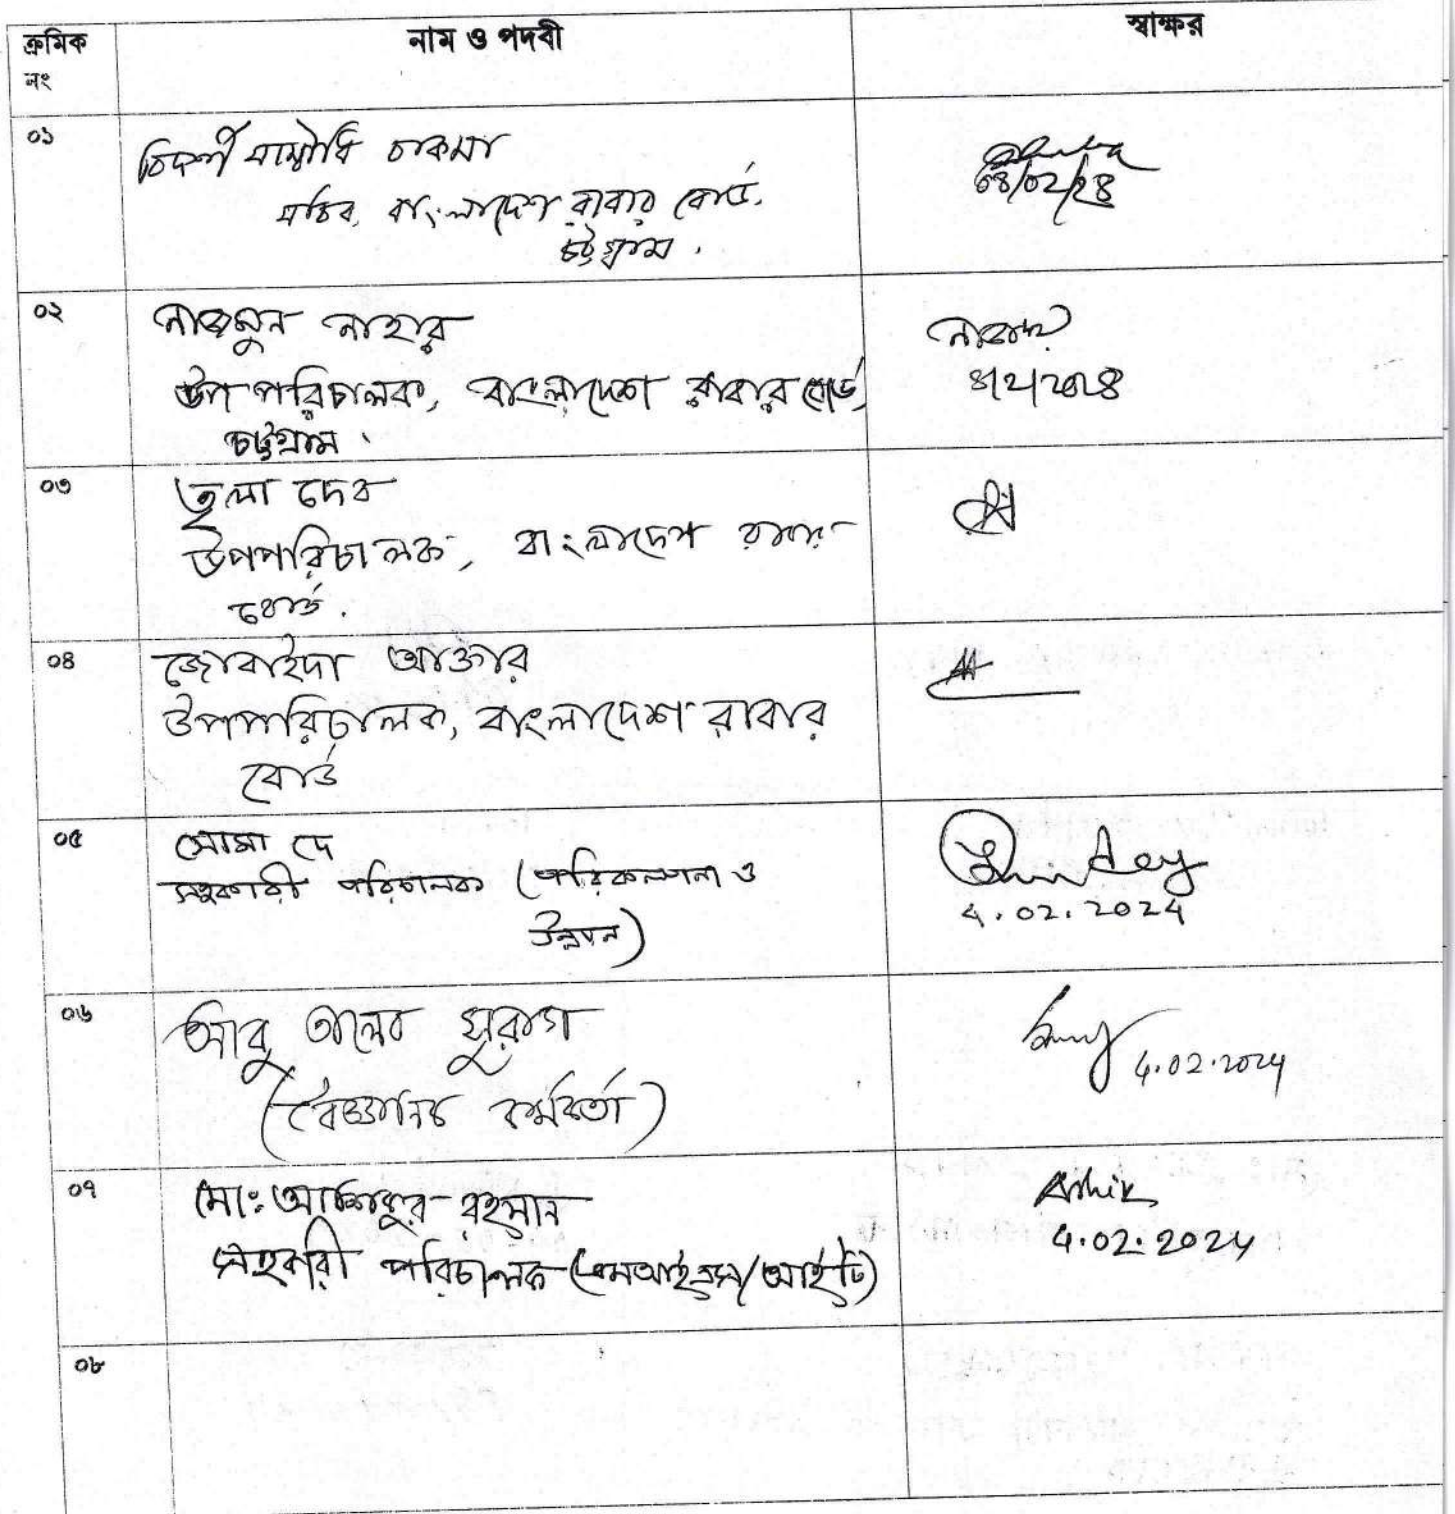 ক্রমিক নাম ও পদবী স্বাক্ষর
নং
০১ চাকমা
সচিব, বাংলাদেশ রাবার বোর্ড,
চট্টগ্রাম।
০৪/০২/২৪
০২ নাজমুন নাহার
উপপরিচালক, বাংলাদেশ রাবার বোর্ড,
চট্টগ্রাম।
নাহার
৪/২/২০২৪
০৩ তুলা দেব
উপপরিচালক, বাংলাদেশ রাবার
বোর্ড।
০৪ জোবাইদা আক্তার
উপপরিচালক, বাংলাদেশ রাবার
বোর্ড
০৫ সোমা দে
সহকারী পরিচালক (পরিকল্পনা ও
উন্নয়ন)
Dey
4.02.2024
০৬ আবু তালেব
(বৈজ্ঞানিক কর্মকর্তা)
4.02.2024
০৭ মো: আশিকুর রহমান
সহকারী পরিচালক (এমআইএস/আইটি)
Ashik
4.02.2024
০৮